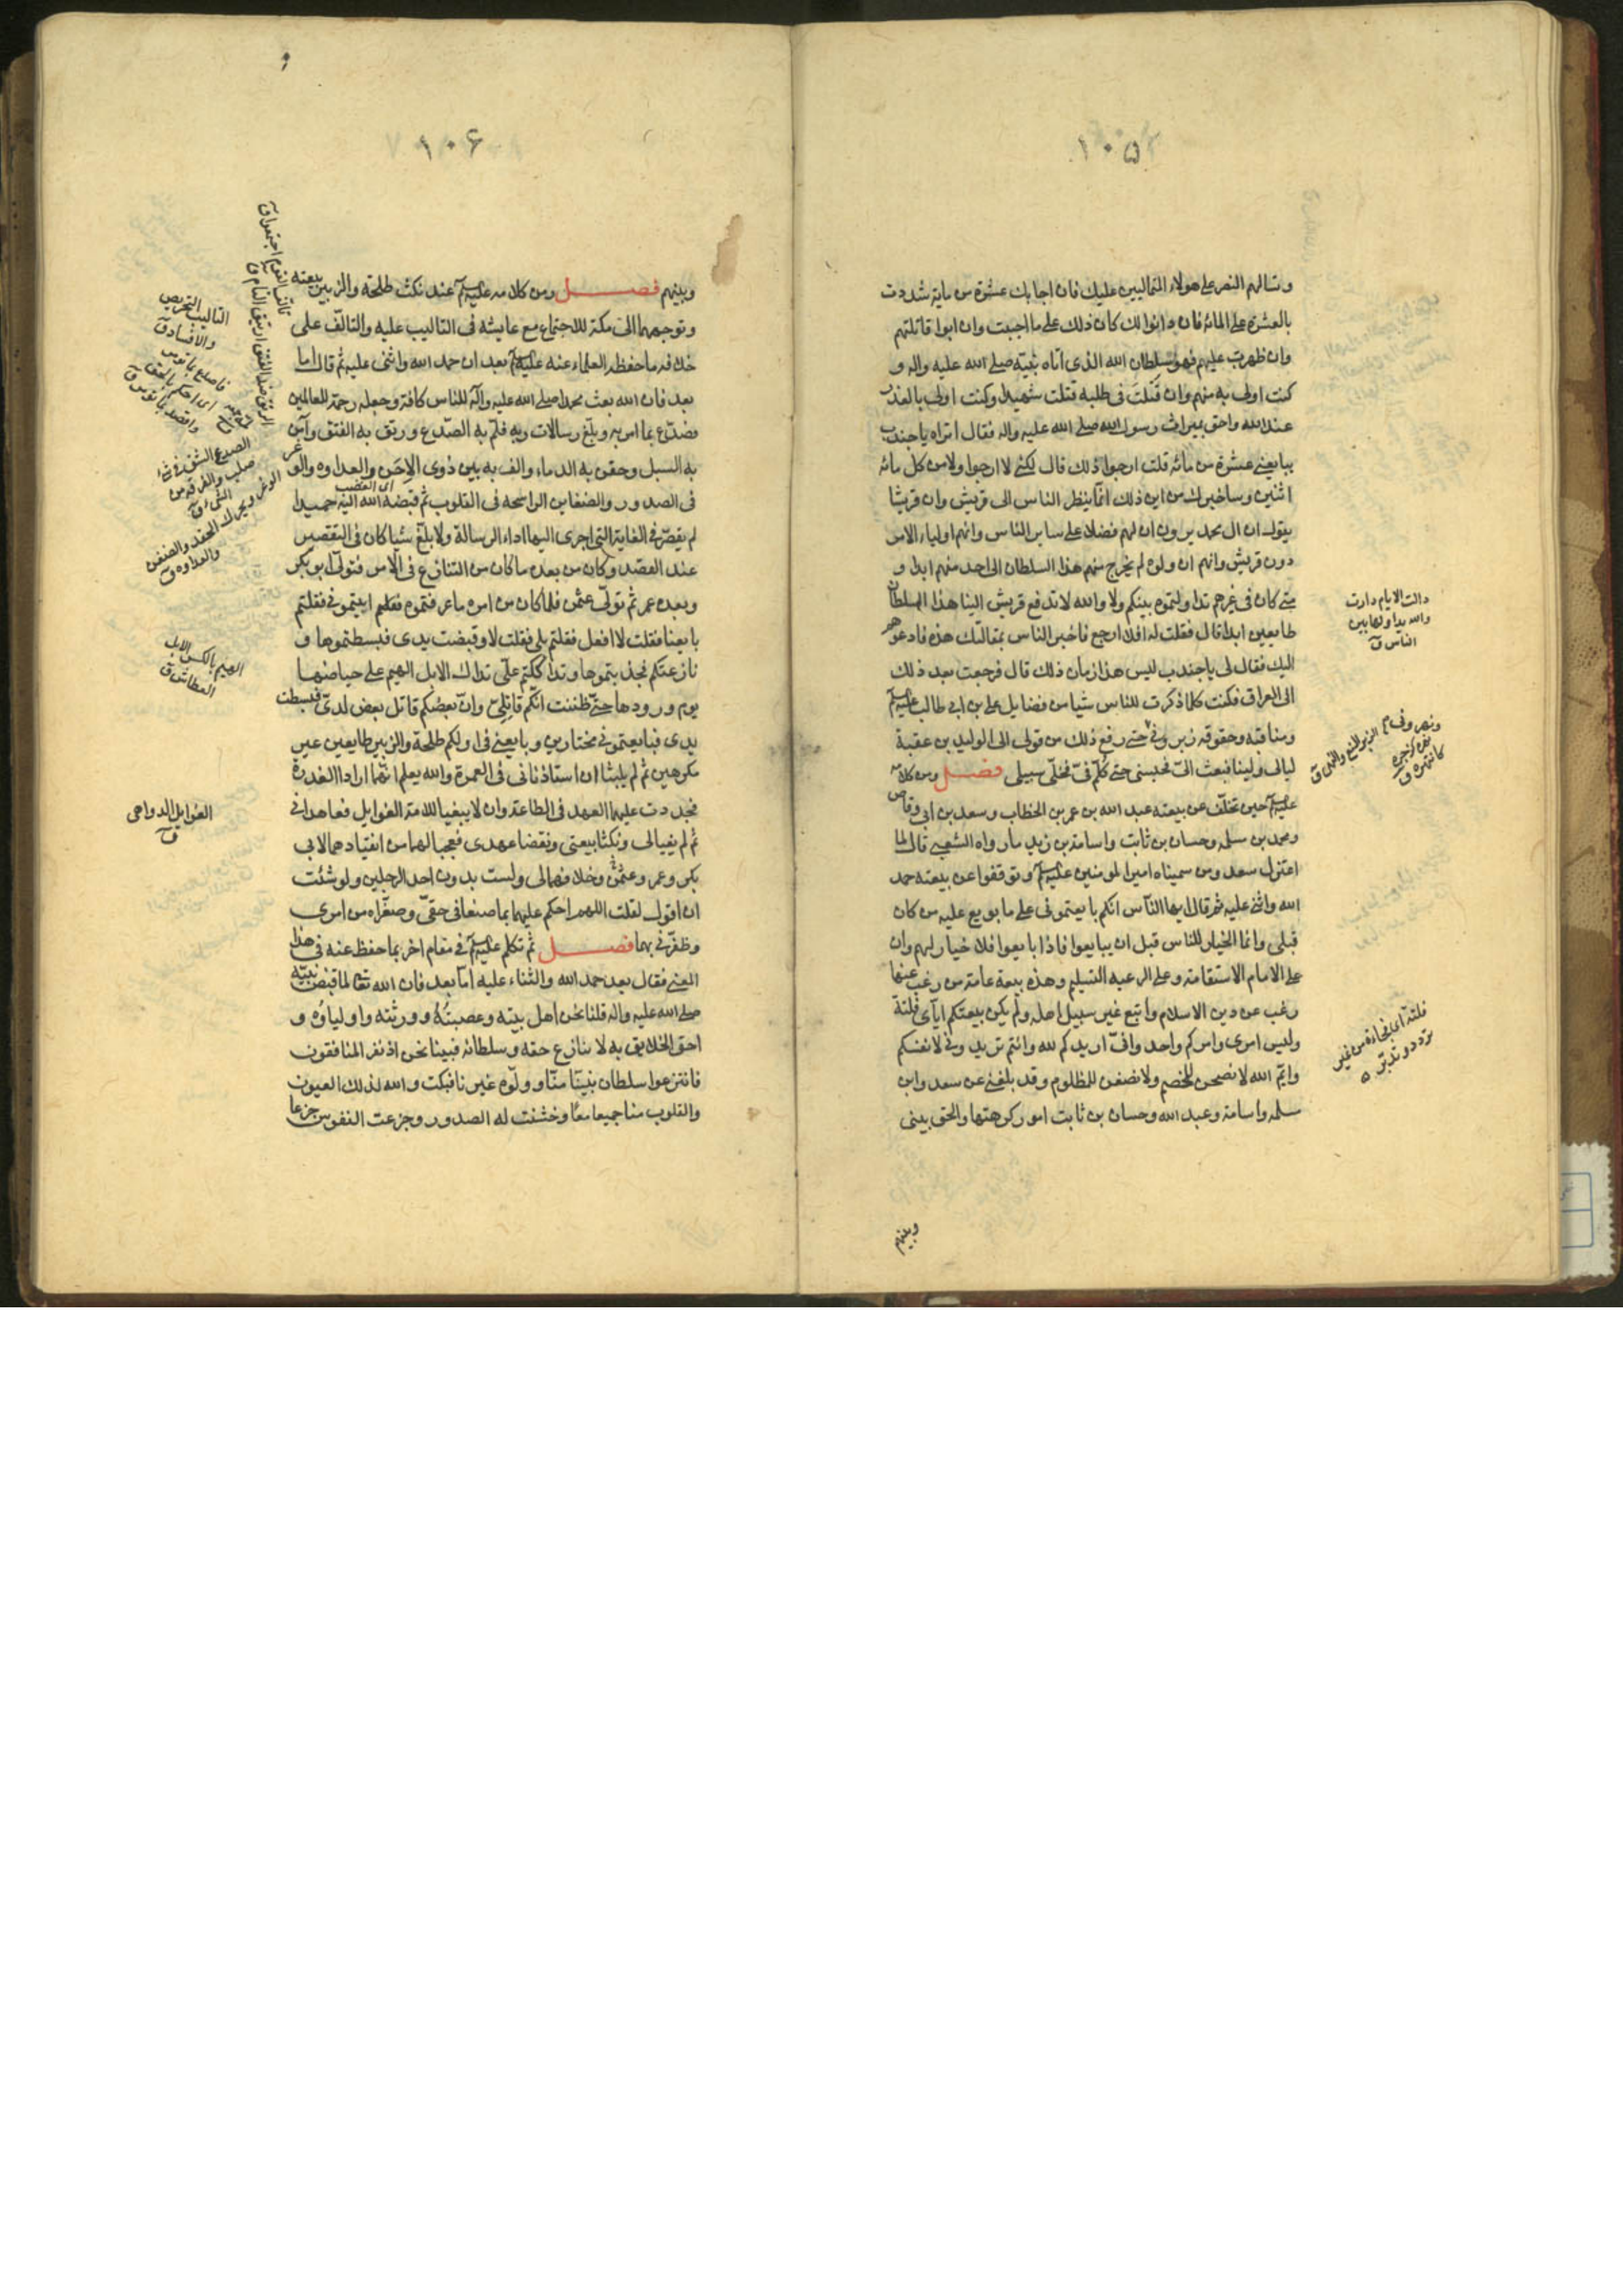 ١٠٥
وتسالهم النصر على هولاء المتماليين عليك فان اجابك عشرة من ماية شددت
بالعشرة على المائة فان دانوا لك كان ذلك على ما احببت وان ابوا قاتلتهم
وان ظهرت عليهم فهو سلطان الله الذى اتاه نبيّه صلى الله عليه واله و
كنت اولى به منهم وان قتلت فى طلبه قتلت شهيدا وكنت اولى بالعذر
عند الله واحق بميراث رسول الله صلى الله عليه واله فقال اتراه يا جندب
يبايعنى عشرة من مائة قلت ارجوا ذلك قال لكنى لا ارجوا ولا من كل مائة
اثنين وساخبرك من اين ذلك انما ينظر الناس الى قريش وان قريشا
يقول ان ال محمد يرون ان لهم فضلا على ساير الناس وانهم اولياء الامر
دون قريش وانهم ان ولوه لم يخرج منهم هذا السلطان الى احد منهم ابدا و
متى كان فى غيرهم تداولتموه بينكم ولا والله لا تدفع قريش الينا هذا السلطان
طايعين ابدا قال فقلت له افلا ارجع فاخبر الناس بمقالتك هذه فادعوهم
اليك فقال لى يا جندب ليس هذا زمان ذلك قال فرجعت بعد ذلك
الى العراق فكنت كلما ذكرت للناس شيا من فضايل على بن ابى طالب عليه السلم
ومناقبه وحقوقه زبرونى حتى رفع ذلك من قولى الى الوليد بن عقبة
ليالى ولينا فبعث الىّ فحبسنى حتى كلّم فىّ فخلّى سبيلى فصل ومن كلامه
عليه السلم حين تخلّف عن بيعته عبد الله بن عمر بن الخطاب وسعد بن ابى وقاص
ومحمد بن سلمه وحسان بن ثابت واسامة بن زيد ما رواه الشعبى قال لما
اعتزل سعد ومن سميناه امير المومنين عليه السلم وتوقفوا عن بيعته حمد
الله واثنى عليه ثم قال ايها الناس انكم بايعتمونى على ما بويع عليه من كان
قبلى وانما الخيار للناس قبل ان يبايعوا فاذا بايعوا فلا خيار لهم وان
على الامام الاستقامة وعلى الرعيه التسليم وهذه بيعة عامة من رغب عنها
رغب عن دين الاسلام واتبع غير سبيل اهله ولم يكن بيعتكم اياى فلتة
وليس امرى وامركم واحد وانّى اريدكم لله وانتم تريدونى لانفسكم
وايم الله لانصحن للخصم ولانصفن للمظلوم وقد بلغنى عن سعد وابن
سلمه واسامة وعبد الله وحسان بن ثابت امور كرهتها والحق بينى
وبينهم
دالت الايام دارت
والله يداولها بين
الناس ق
الزبر المنع والنهى ق
كانتهره ق
فلتة اى فجاءة من غير
تردد وتدبّر
١٠۶
وبينهم فصل ومن كلامه عليه السلم عند نكث طلحة والزبير بيعته
وتوجههما الى مكة للاجتماع مع عايشه فى التاليب عليه والتالّف على
خلافه ما حفظه العلماء عنه عليه السلم بعد ان حمد الله واثنى عليه ثم قال اما
بعد فان الله بعث محمدا صلى الله عليه وآله للناس كافة وجعله رحمة للعالمين
فصدّع بما امر به وبلّغ رسالات ربه فلمّ به الصّدع ورتق به الفتق وآمن
به السبل وحقن به الدماء والف به بين ذوى الاحن والعداوه والوغر
فى الصدور والضغاين الراسخه فى القلوب ثم قبضه الله اليه حميدا
اى الغضب
لم يقصّر فى الغاية التى اجرى اليها اداء الرسالة ولا بلّغ شيا كان فى التقصير
عند القصد وكان من بعده ما كان من التنازع فى الامر فتولّى ابوبكر
وبعده عمر ثم تولّى عثمن فلما كان من امره ما عرفتموه فعلم اتيتمونى فقلتم
بايعنا فقلت لا افعل فقلتم بلى فقلت لا وقبضت يدى فبسطتموها و
نازعتكم فجذبتموها وتداككتم علىّ تداك الابل الهيم على حياضها
يوم ورودها حتى ظننت انكم قاتلىّ وانّ بعضكم قاتل بعض لدىّ فبسطت
يدى فبايعتمونى مختارين وبايعنى فى اولكم طلحة والزبير طايعين غير
مكرهين ثم لم يلبثا ان استاذنانى فى العمرة والله يعلم انهما ارادا الغدرة
فجددت عليهما العهد فى الطاعة وان لا يبغيا للامة الغوايل فعاهدانى
ثم لم يفيا لى ونكثا بيعتى ونقضا عهدى فعجبا لهما من انقيادهما لابى
بكر وعمر وعثمن وخلافهما لى ولست بدون احد الرجلين ولو شئت
ان اقول لقلت اللهم احكم عليهما بما صنعا فى حقىّ وصغّرا من امرى
وظفّرنى بهما فصل ثم تكلم عليه السلم فى مقام اخر بما حفظ عنه فى هذا
المعنى فقال بعد حمد الله والثناء عليه اما بعد فان الله تعالى لما قبض نبيّه
صلى الله عليه واله قلنا نحن اهل بيته وعصبته وورثته واولياؤه و
احق الخلايق به لا ننازع حقه وسلطانه فبينا نحن اذ نفر المنافقون
فانتزعوا سلطان نبيّنا منّا وولّوه غيرنا فبكت والله لذلك العيون
والقلوب منا جميعا معا وخشنت له الصدور وجزعت النفوس جزعا
تالف القوم اجتمعوا ق
الرتق ضد الفتق ارتتق التام ق
التاليب التحريص
والافساد ق
فاصدع بما تومر
اى احكم بالحق
واقصد بما تؤمر ق
الصدع الشق فى شى
صلب والفرقه من
الشى ق
الوغر ويحرك الحقد والضغن
والعداوه ق
الهيم بالكسر الابل
العطاش ق
الغوايل الدواهى
ق